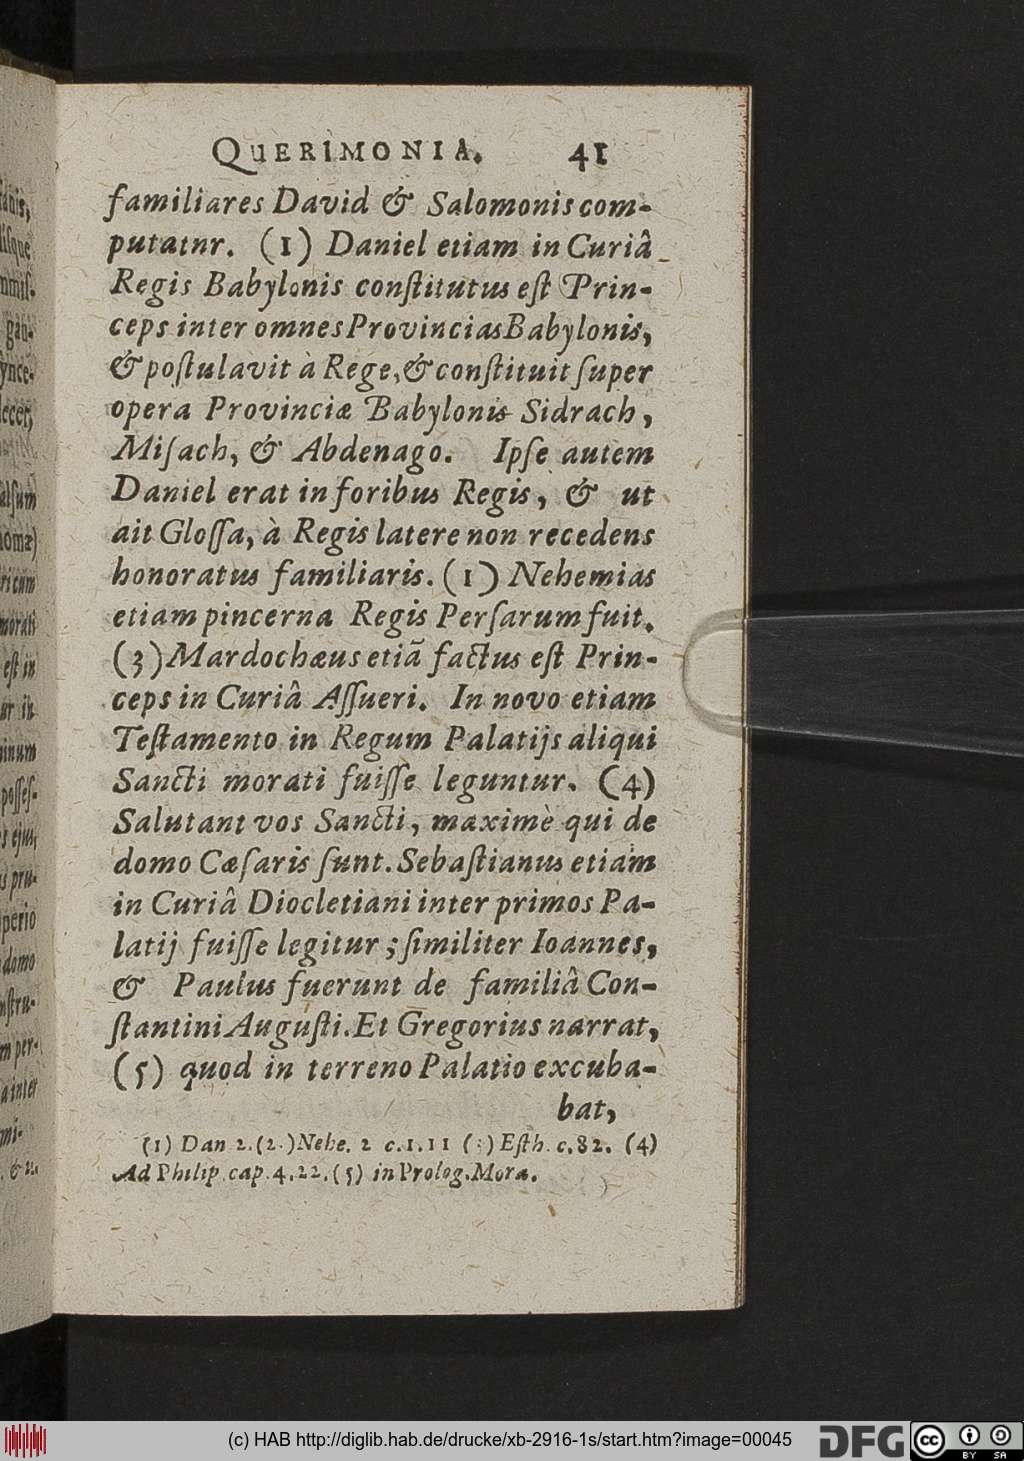 QUERIMONIA. 41
familiares David & Salomonis com-
putatnr. (1) Daniel etiam in Curiâ
Regis Babylonis conſtitutus eſt Prin-
ceps inter omnes Provincias Babylonis,
& poſtulavit à Rege, & conſtituit ſuper
opera Provinciæ Babylonis Sidrach,
Miſach, & Abdenago. Ipſe autem
Daniel erat in foribus Regis, & ut
ait Gloſſa, à Regis latere non recedens
honoratus familiaris. (1) Nehemias
etiam pincerna Regis Perſarum fuit.
(3) Mardochæus etiã factus eſt Prin-
ceps in Curiâ Aſſueri. In novo etiam
Teſtamento in Regum Palatijs aliqui
Sancti morati fuiſſe leguntur. (4)
Salutant vos Sancti, maximè qui de
domo Cæſaris ſunt. Sebaſtianus etiam
in Curiâ Diocletiani inter primos Pa-
latij fuiſſe legitur; ſimiliter Ioannes,
& Paulus fuerunt de familiâ Con-
ſtantini Auguſti. Et Gregorius narrat,
(5) quod in terreno Palatio excuba-
bat,
(1) Dan 2. (2.) Nehe. 2 c.1.11 (3) Eſth. c.82. (4)
Ad Philip. cap. 4.22. (5) in Prolog. Mora.
(c) HAB http://diglib.hab.de/drucke/xb-2916-1s/start.htm?image=00045
DFG
cc
BY SA